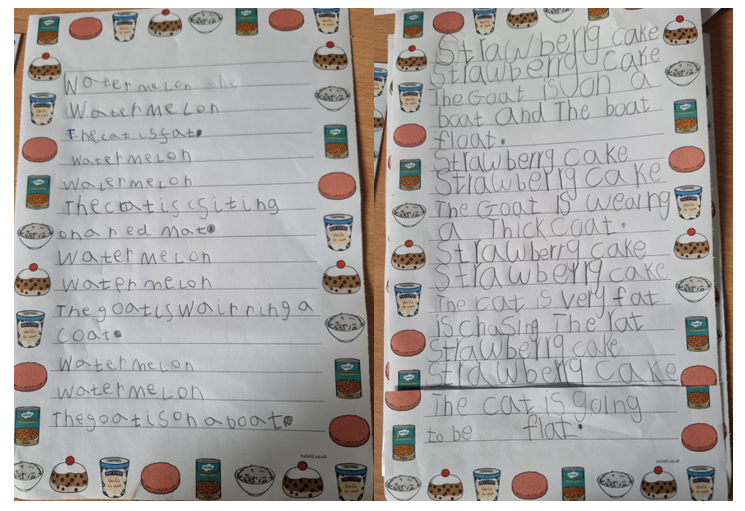 Watermelon
Watermelon
The cat is fat.
watermelon
watermelon
The cat is siting
on a red mat.
Watermelon
watermelon
The goat is wairring a
coat.
watermelon
watermelon
The goat is on a boat.
twinkl.co.uk
Strawberry cake
Strawberry cake
The Goat is on a
boat and The boat
float.
Strawberry cake
Strawberry cake
The Goat is wearing
a Thick coat.
Strawberry cake
Strawberry cake
The cat is very fat
is chasing The rat
Strawberry cake
Strawberry cake
The cat is going
to be flat.
twinkl.co.uk